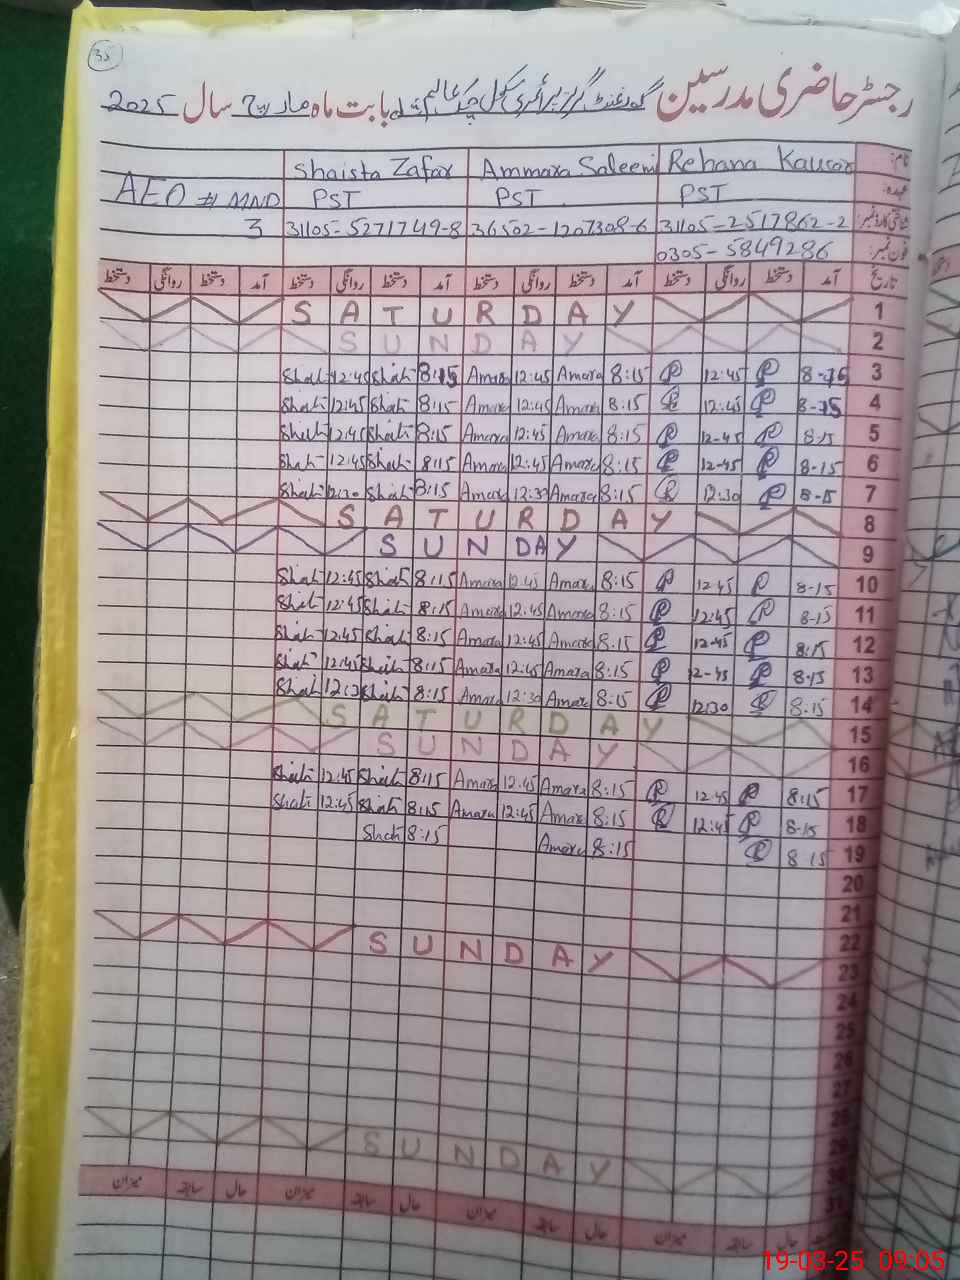 35
رجسٹر حاضری مدرسین گورنمنٹ گرلز پرائمری سکول چک عالم بابت ماہ مارچ سال 2025
نام: Rehana Kausar Ammara Saleem Shaista Zafar
عہدہ: PST PST PST AEO # MND
شناختی کارڈ نمبر: 31105-2517862-2 36502-1207308-6 31105-5271749-8 3
فون نمبر: 0305-5849286
تاریخ آمد دستخط روانگی دستخط آمد دستخط روانگی دستخط آمد دستخط روانگی دستخط آمد دستخط روانگی دستخط
SATURDAY 1
SUNDAY 2
Shah 12:45 Shah 8:15 Amara 12:45 Amara 8:15 R 12:45 R 8-15 3
Shah 12:45 Shah 8:15 Amara 12:45 Amara 8:15 R 12:45 R 8-15 4
Shah 12:45 Shah 8:15 Amara 12:45 Amara 8:15 R 12-45 R 8-15 5
Shah 12:45 Shah 8:15 Amara 12:45 Amara 8:15 R 12-45 R 8-15 6
Shah 12:30 Shah 8:15 Amara 12:30 Amara 8:15 R 12:30 R 8-15 7
SATURDAY 8
SUNDAY 9
Shah 12:45 Shah 8:15 Amara 12:45 Amara 8:15 R 12:45 R 8-15 10
Shah 12:45 Shah 8:15 Amara 12:45 Amara 8:15 R 12:45 R 8-15 11
Shah 12:45 Shah 8:15 Amara 12:45 Amara 8:15 R 12-45 R 8:15 12
Shah 12:45 Shah 8:15 Amara 12:45 Amara 8:15 R 12-45 R 8-15 13
Shah 12:30 Shah 8:15 Amara 12:30 Amara 8:15 R 12:30 R 8:15 14
SATURDAY 15
SUNDAY 16
Shah 12:45 Shah 8:15 Amara 12:45 Amara 8:15 R 12:45 R 8:15 17
Shah 12:45 Shah 8:15 Amara 12:45 Amara 8:15 R 12:45 R 8-15 18
Shah 8:15 Amara 8:15 R 8:15 19
20
21
22
SUNDAY 23
24
25
26
27
28
29
SUNDAY 30
31
حال سابقہ میزان حال سابقہ میزان حال سابقہ میزان حال سابقہ میزان
19-03-25 09:05